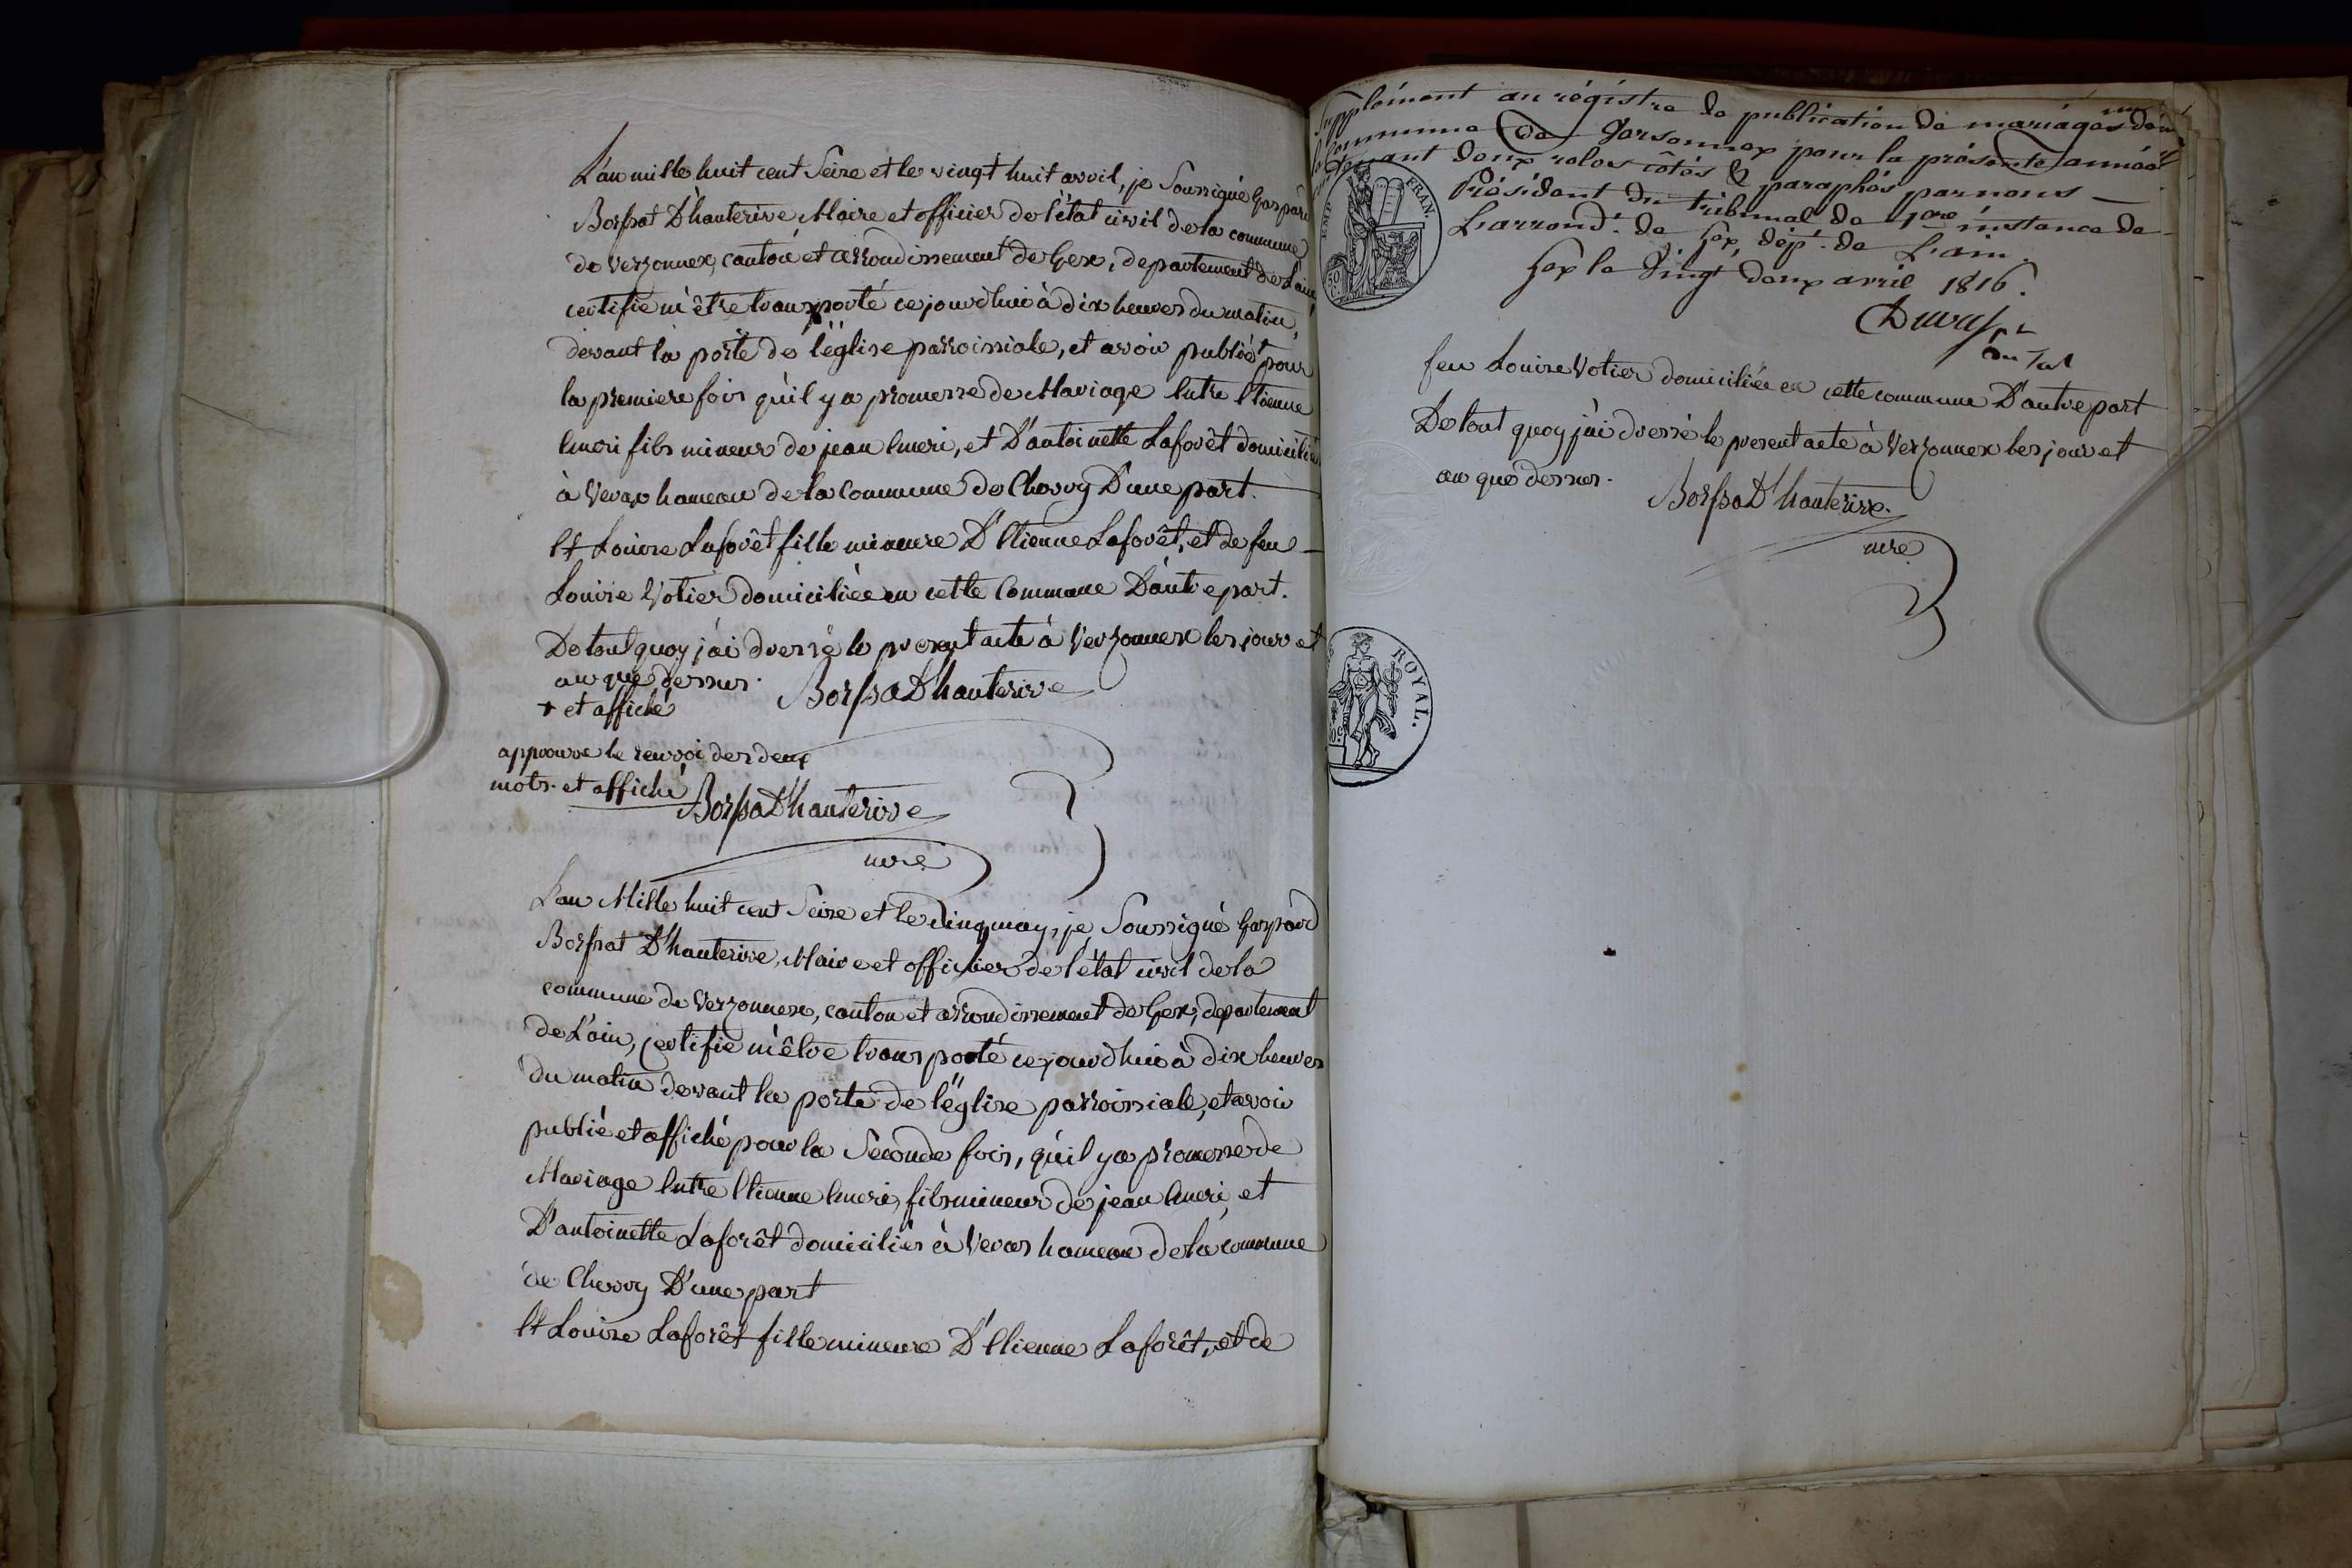 L'an mille huit cent Seize et le vingt huit avril, je Soussigné Gaspard
Borssat D'hauterive Maire et officier de l'état civil de la commune
de Verzonnex, canton et arrondissement de Gex, departement de L'ain
certifie m'être transporté ce jourdhui à dix heures du matin,
devant la porte de l'église parroissiale, et avoir publié + pour
la premiere fois qu'il y a promesse de Mariage Entre Etienne
Emeri fils mineur de jean Emeri, et D'antoinette Laforêt domiciliés
à Veraz hameau de la Commune de Chevry D'une part.
Et Louise Laforêt fille mineure D'Etienne Laforêt, et de feu
Louise Votier domiciliée en cette Commune D'autre part.
De tout quoy j'ai dressé le present acte à Verzonnex les jour et
an que dessus.
Borssat D'hauterive
+ et affiché
approuve le renvoi des deux
mots et affiché
Borssat D'hauterive
mre
L'an Mille huit cent Seize et le cinq may, je Soussigné Gaspard
Borssat D'hauterive, Maire et officier de l'état civil de la
commune de Verzonnex, canton et arrondissement de Gex, departement
de L'ain, certifie m'être transporté ce jourdhui à dix heures
du matin devant la porte de l'église parroissiale, et avoir
publié et affiché pour la Seconde fois, qu'il y a promesse de
Mariage Entre Etienne Emeri, fils mineur de jean Emeri, et
D'antoinette Laforêt domiciliés à Veraz hameau de la commune
de Chevry D'une part
Et Louise Laforêt fille mineure D'Etienne Laforêt, et de
Supplément au régistre de publication de mariages de
la Commune de Versonnex pour la présente année
contenant deux roles côtés & paraphés par nous
Président du tribunal de 1ere instance de
L'arrond.t de Gex, dép.t de L'ain.
Gex le Vingt deux avril 1816.
EMP. FRAN.
feu Louise Votier domiciliée en cette commune D'autre part
De tout quoy j'ai dressé le present acte à Verzonnex les jour et
an que dessus.
Borssat D'hauterive.
mre
ROYAL.